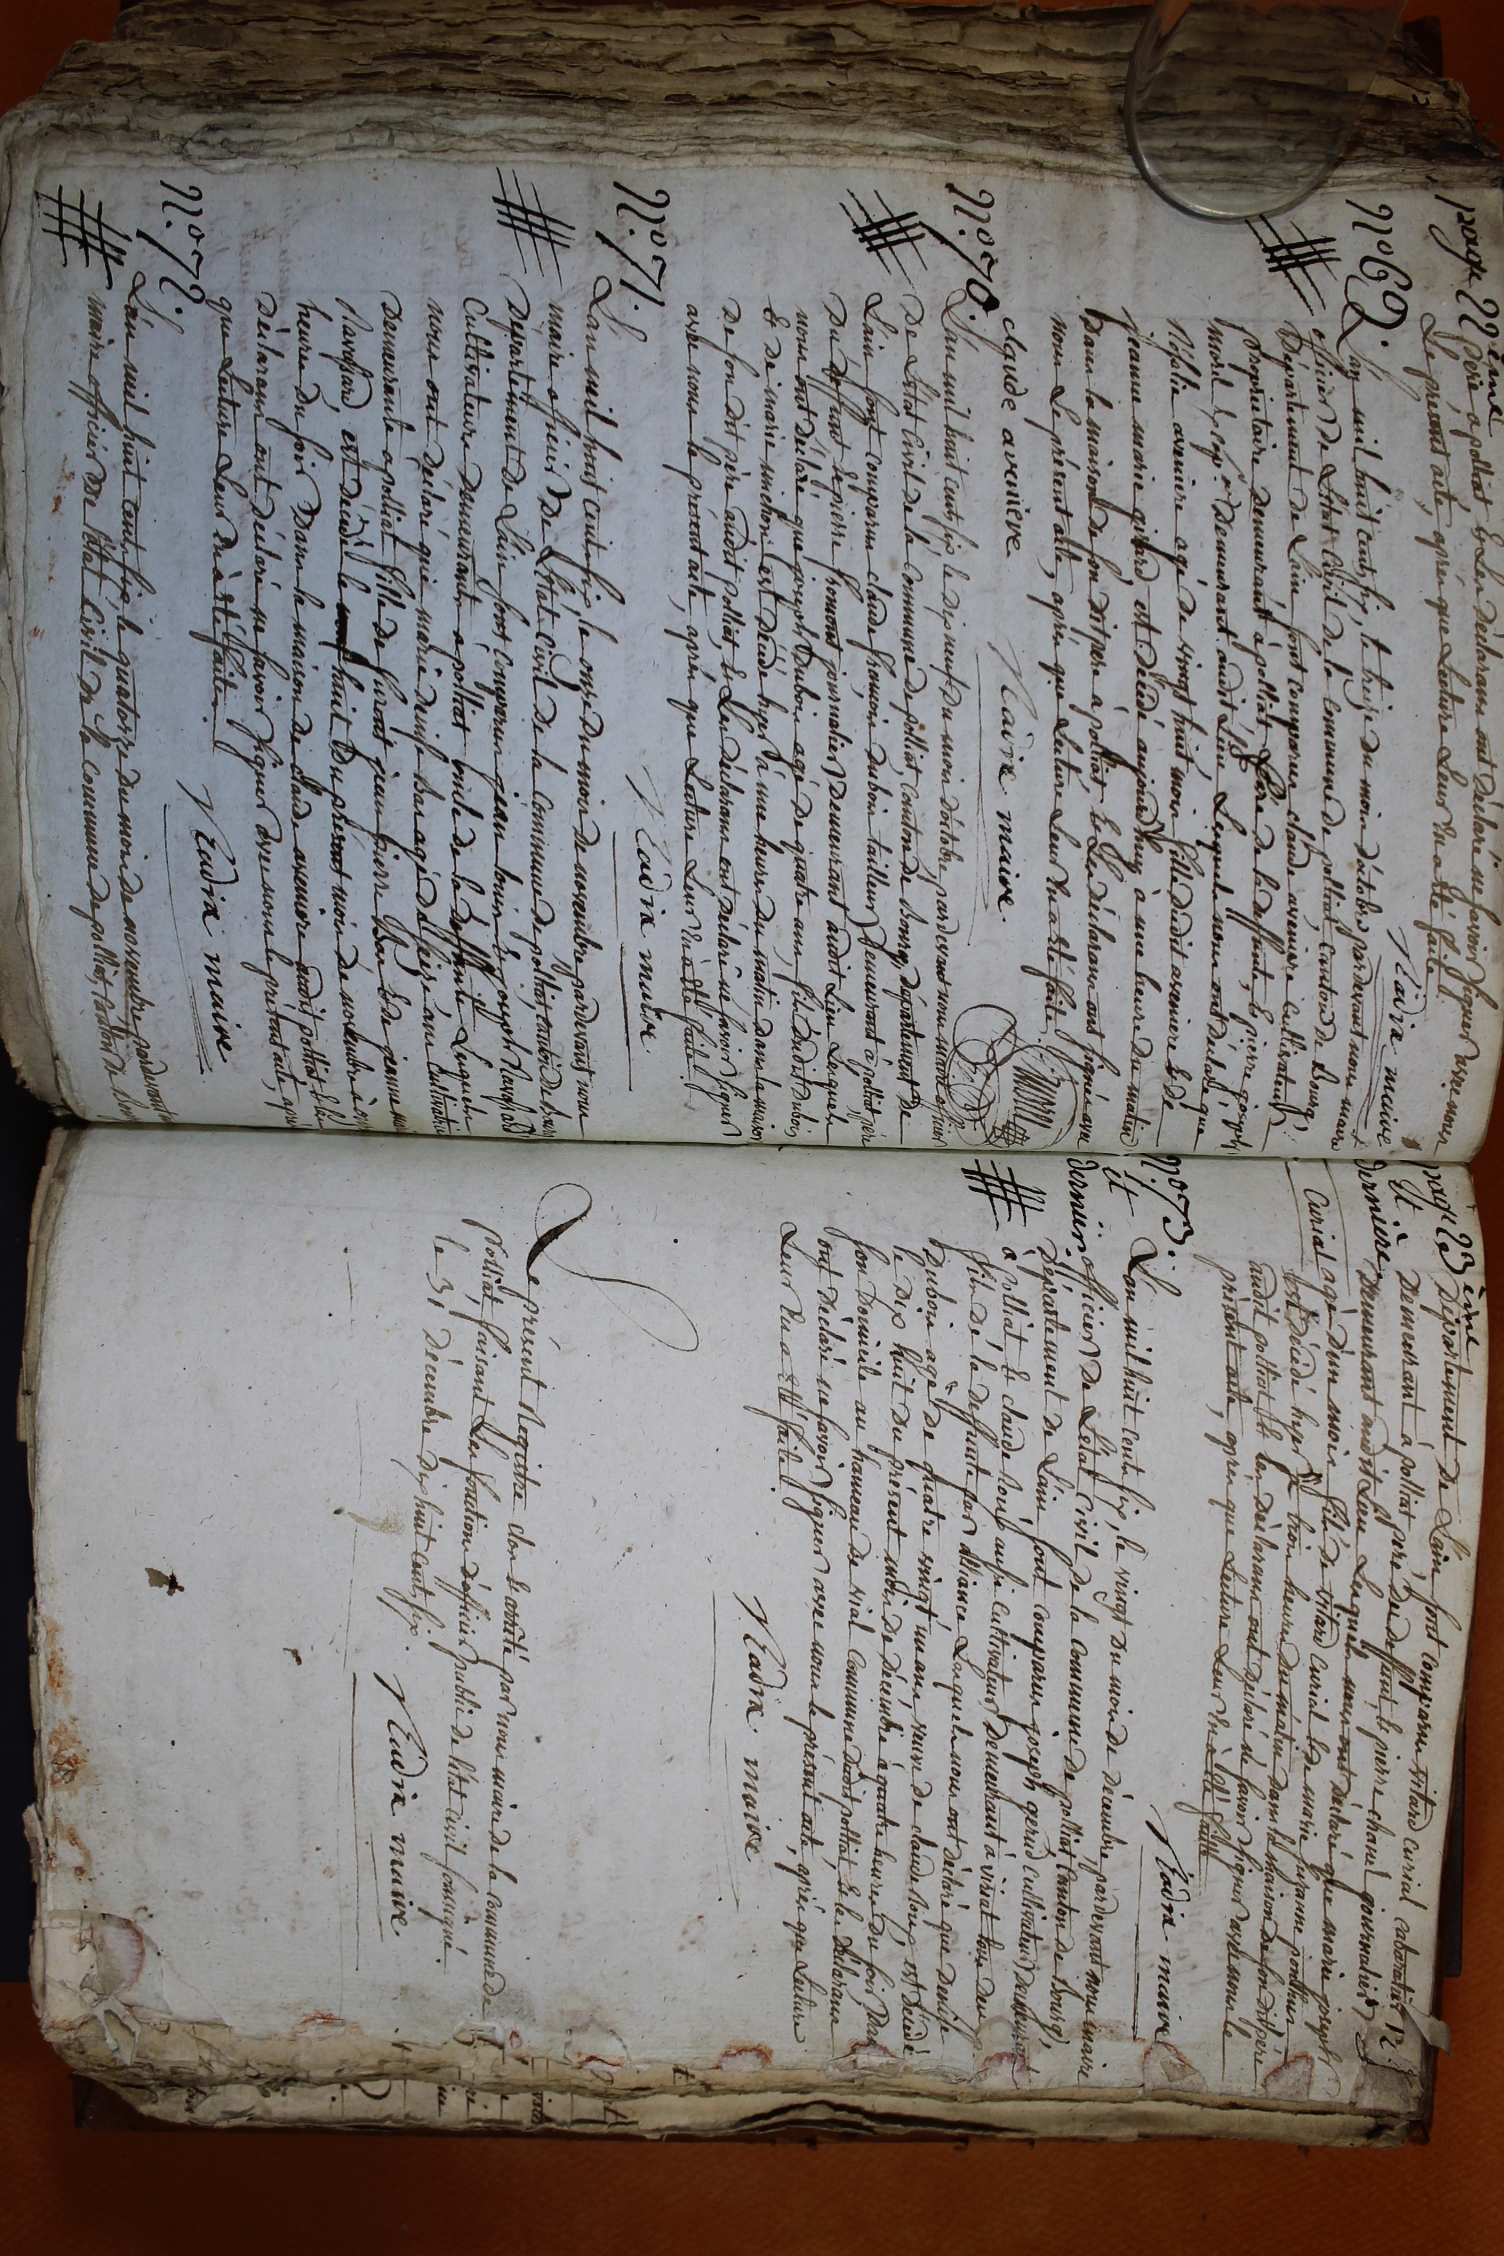 page 22 ème
père a polliat & les déclarans ont déclaré ne savoir signer avec nous
Le présent acte, après que Lecture Leur en a été faite.
maire
No 69.
L'an mil huit cents six, le treize du mois d'octobre pardevant nous maire
officier de L'état Civil de la Commune de polliat canton de Bourg,
Département de L'ain sont comparus claude aveniere cultivateur
proprietaire demeurant à polliat père de la deffunte, & pierre joseph
morel demeurant audit Lieu Lesquels nous ont déclaré que
aveniere agé de vingt huit mois fille dudit aveniere & de
jeanne marie girard est décédé aujourd'huy à une heure du matin
Dans la maison de son dit père a polliat, & Les déclarans ont signés avec
nous Le présent acte, après que Lecture Leur en a été faite.
claude aveniere
maire
No 70.
L'an mil huit cents six le dix neuf du mois d'octobre pardevant nous maire officier
De L'état Civil de la commune de polliat, canton de bourg, département de
L'ain sont comparus claude françois dubois tailleur demeurant à polliat père
Du deffunt & pierre journalier Demeurant audit Lieu Lesquels
nous ont déclaré que joseph Dubois agé de quatre ans, fils dudit dubois
& de marie michon est décédé hyer à une heure du matin dans la maison
De son dit père audit polliat, & Les déclarans ont déclaré ne savoir signer
avec nous le présent acte, après que Lecture Leur en a été faite.
maire
No 71.
L'an mil huit cents six, le onze du mois de novembre pardevant nous
maire officier De L'état Civil de la Commune de polliat, canton de bourg
Département de L'ain sont comparus jean louis & joseph
Cultivateurs demeurants a polliat oncle de la deffunte Lesquels
nous ont déclaré que marie denise Ban agé de seize ans Cultivatrice
Demeurante a polliat fille de furent jean pierre Ban & de jeanne marie
est décédé le huit du présent mois de novembre à
heures du soir Dans la maison de claude aveniere audit polliat & les
Déclarans ont déclaré ne savoir signer avec nous le présent acte, après
que Lecture Leur en a été faite.
maire
No 72.
L'an mil huit cents six, le quatorze du mois de novembre, pardevant nous
maire officier De L'état Civil de la commune de polliat, canton de Bourg
page 23 ème
et
dernière
Département de L'ain sont comparus vitard curial
Demeurant à polliat père du deffunt, & pierre journalier
Demeurant audit Lieu Lesquels nous ont déclaré que marie joseph
Curial agé d'un mois fils de vitard curial & de marie suzanne ponthus
est décédé hyer à trois heures du matin dans la maison de son dit père
audit polliat & les déclarans ont déclaré ne savoir signer avec nous le
présent acte, après que Lecture Leur en a été faitte
maire
No 73.
et
dernier
L'an mil huit cents six, le vingt du mois de décembre, pardevant nous maire
officier De L'état Civil de la commune de polliat Canton de Bourg,
Département de L'ain sont comparus joseph cultivateur demeurant
à polliat & claude aussi cultivateur demeurant à viriat
fils de la deffunte par alliance Lesquels nous ont déclaré que denise
Dubois agé de quatre vingt un ans veuve de claude est décédé
le dix huit du présent mois de décembre à quatre heures du soir Dans
son domicile au hameau de vial commune dudit polliat, & les déclarans
ont déclaré ne savoir signer avec nous le présent acte, après que Lecture
Leur en a été faite.
maire
Le présent Registre clos & arrêté par nous maire de la commune de
Polliat, faisant Les fonctions d'officier public de l'état civil soussigné.
le 31 Décembre dix huit cent six.
maire